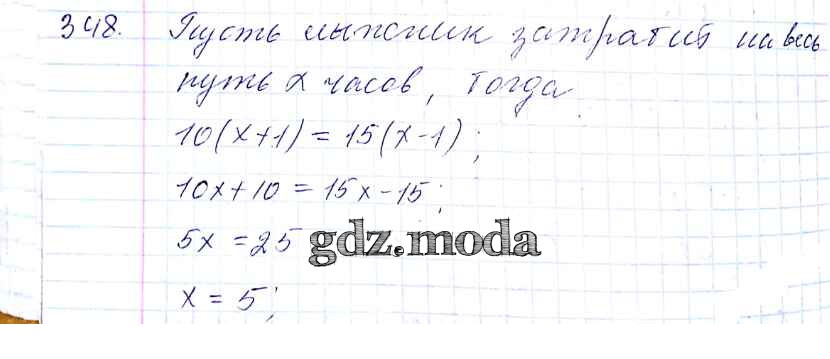 348. Пусть лыжник затратит на весь
путь x часов, тогда
10(x+1) = 15(x-1);
10x+10 = 15x-15;
5x = 25
gdz.moda
x = 5;